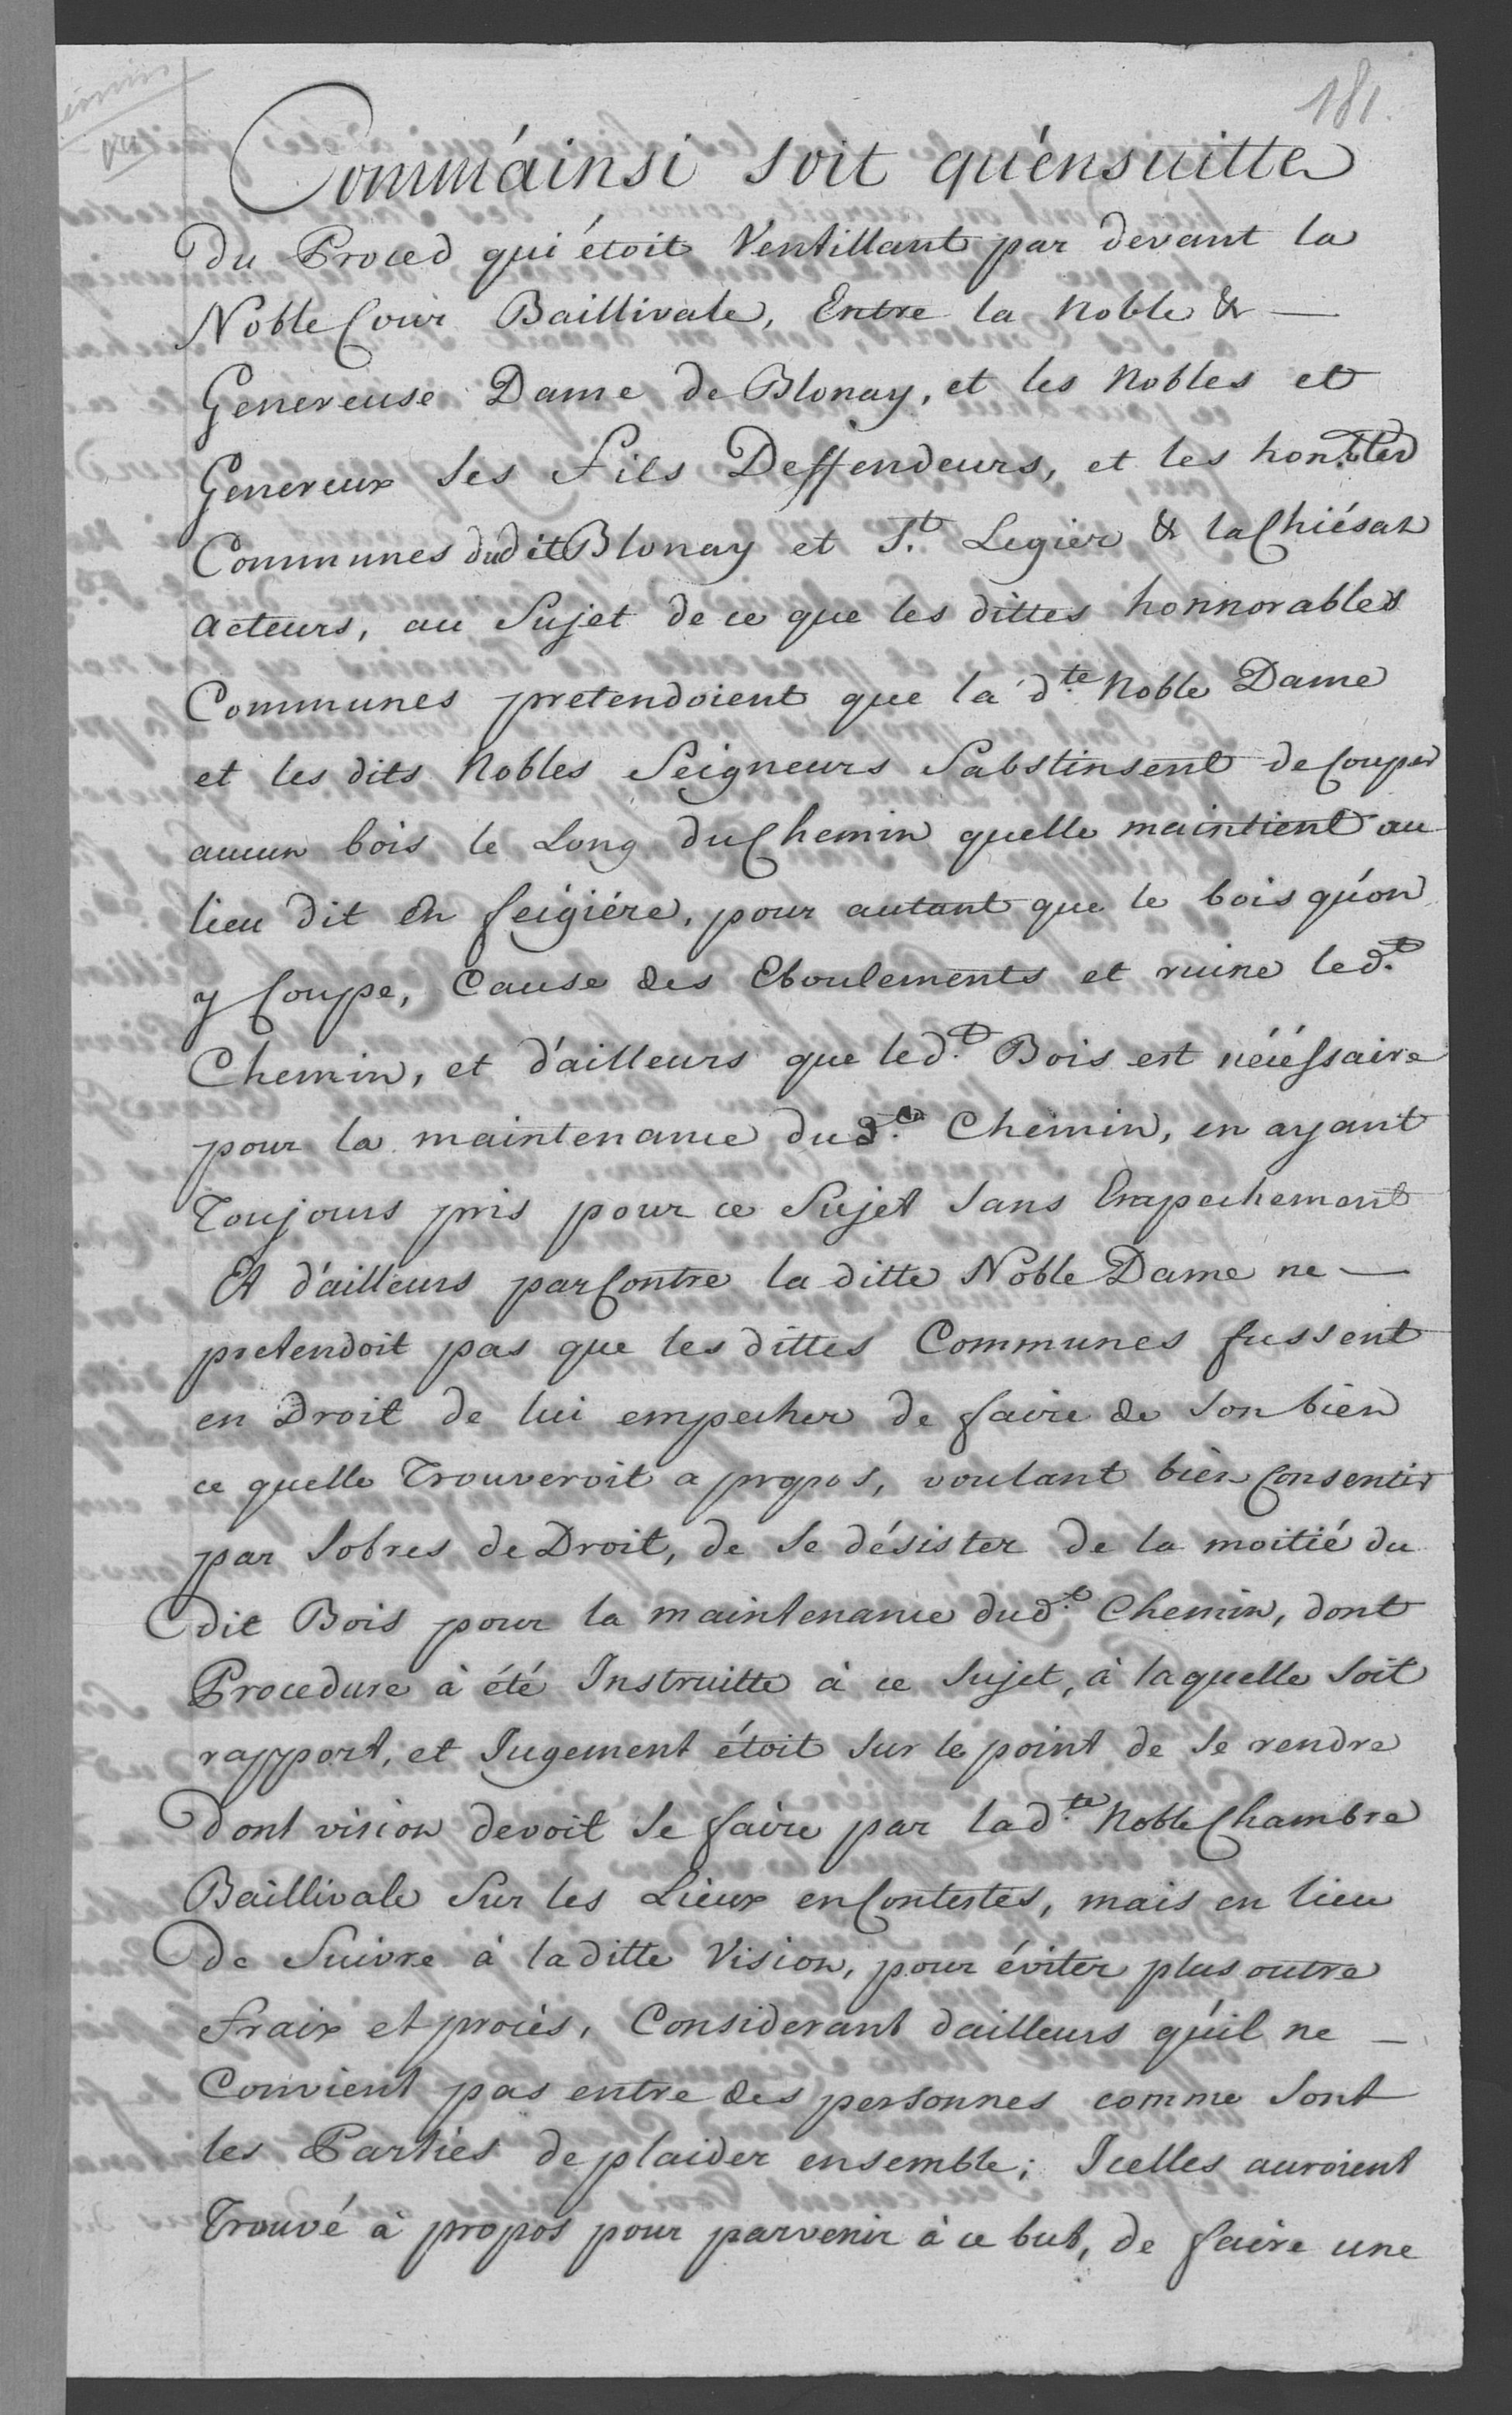 181.
Comm'ainsi soit qu'ensuitte
du Procès qui étoit Ventillant par devant la
Noble Cour Baillivale, Entre la Noble &
Genereuse Dame de Blonay, et les Nobles et
Genereux ses Fils Deffendeurs, et les honbles
Communes dudit Blonay et St. Legier & la Chiésaz
acteurs, au Sujet de ce que les dittes honnorables
Communes pretendoient que la dte. Noble Dame
et les dits Nobles Seigneurs S'abstinsent de Couper
aucun bois le Long du Chemin quelle maintient au
lieu dit En feigiére, pour autant que le bois qu'on
y Coupe, Cause des Eboulements et ruine ledt.
Chemin, et d'ailleurs que ledt. Bois est nécéssaire
pour la maintenance dudt. Chemin, en ayant
Toujours pris pour ce Sujet Sans Empechement
Et d'ailleurs par Contre la ditte Noble Dame ne
pretendoit pas que les dittes Communes fussent
en Droit de lui empecher de faire de Son bien
ce quelle Trouveroit a propos, voulant bien Consentir
par Sobres de Droit, de Se désister de la moitié du
dit Bois pour la maintenance dudt. Chemin, dont
Procedure à été Instruitte à ce Sujet, à laquelle Soit
rapport, et Jugement étoit Sur le point de Se rendre
dont vision devoit Se faire par ladte. Noble Chambre
Baillivale Sur les Lieux en Contestes, mais en lieu
de Suivre à la ditte Vision, pour éviter plus outre
fraix et procès, Considerant dailleurs qu'il ne
Convient pas entre des personnes comme Sont
les Parties de plaider ensemble; Icelles auroient
Trouvé à propos pour parvenir à ce but, de faire une